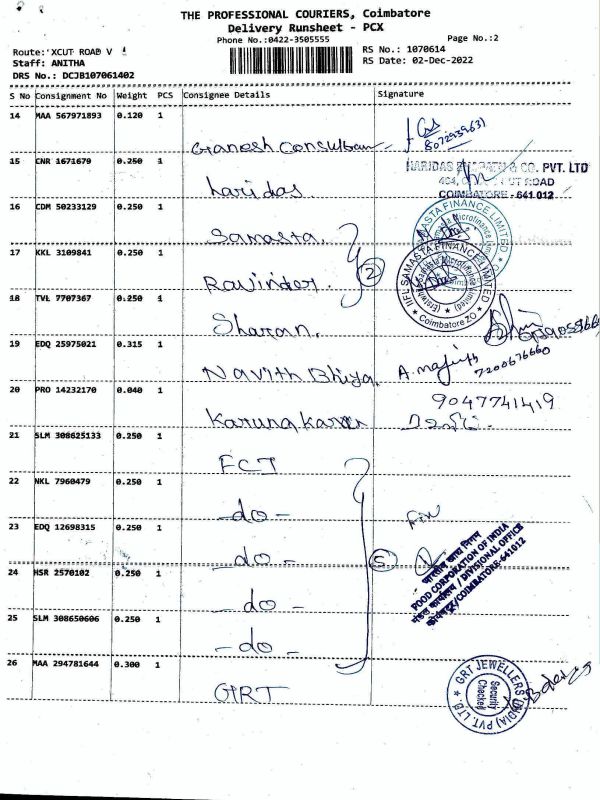 THE PROFESSIONAL COURIERS, Coimbatore
Delivery Runsheet - PCX
Phone No.:0422-3505555
Page No.:2
Route: XCUT ROAD V
Staff: ANITHA
DRS No.: DCJB107061402
RS No.: 1070614
RS Date: 02-Dec-2022
S No Consignment No Weight PCS Consignee Details Signature
14 MAA 567971893 0.120 1
Ganesh Consultan
8072939631
15 CNR 1671679 0.250 1
haridas
HARIDAS & CO. PVT. LTD
ROAD
COIMBATORE - 641 012
16 CDM 50233129 0.250 1
Samasta.
17 KKL 3109841 0.250 1
Ravinder.
2
IIFL SAMASTA FINANCE LIMITED
Coimbatore ZO
18 TVL 7707367 0.250 1
Sharan.
19 EDQ 25975021 0.315 1
Navith Bhiya.
7200676660
20 PRO 14232170 0.040 1
Karunakaran
9047741419
21 SLM 308625133 0.250 1
FCI
22 NKL 7960479 0.250 1
- do -
23 EDQ 12698315 0.250 1
- do -
5
भारतीय खाद्य निगम
FOOD CORPORATION OF INDIA
मंडल कार्यालय / DIVISIONAL OFFICE
कोयम्बत्तूर/COIMBATORE-641012
24 HSR 2570102 0.250 1
- do -
25 SLM 308650606 0.250 1
- do -
26 MAA 294781644 0.300 1
GRT
GRT JEWELLERS (INDIA) PVT. LTD.
Security
Checked